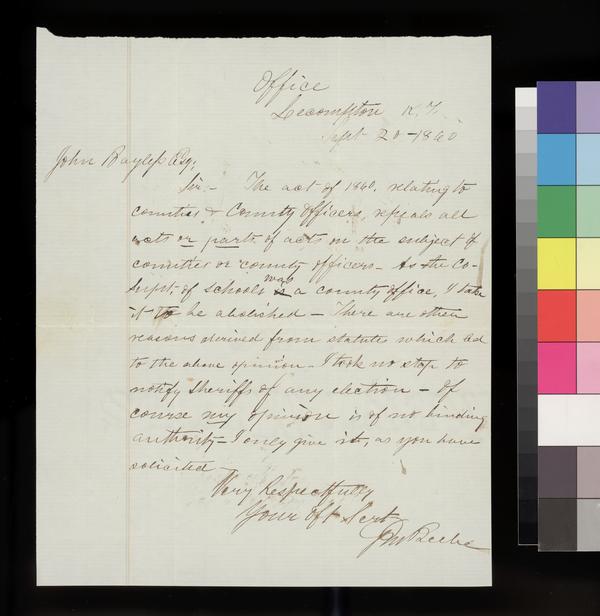 Office
Lecompton K.T.
Sept 20 - 1860
John Bayless Esq;
Sir - The act of 1860, relating to
counties & County Officers, repeals all
acts or parts of acts on the subject of
counties or county officers - As the Co-
Supt. of schools was a county office, I take
it to be abolished - There are other
reasons derived from statute which led
to the above opinion - I took no steps to
notify Sheriffs of any election - Of
course my opinion is of no binding
authority - I only give it, as you have
solicited -
Very Respectfully
Your Obt Servt
Beebe